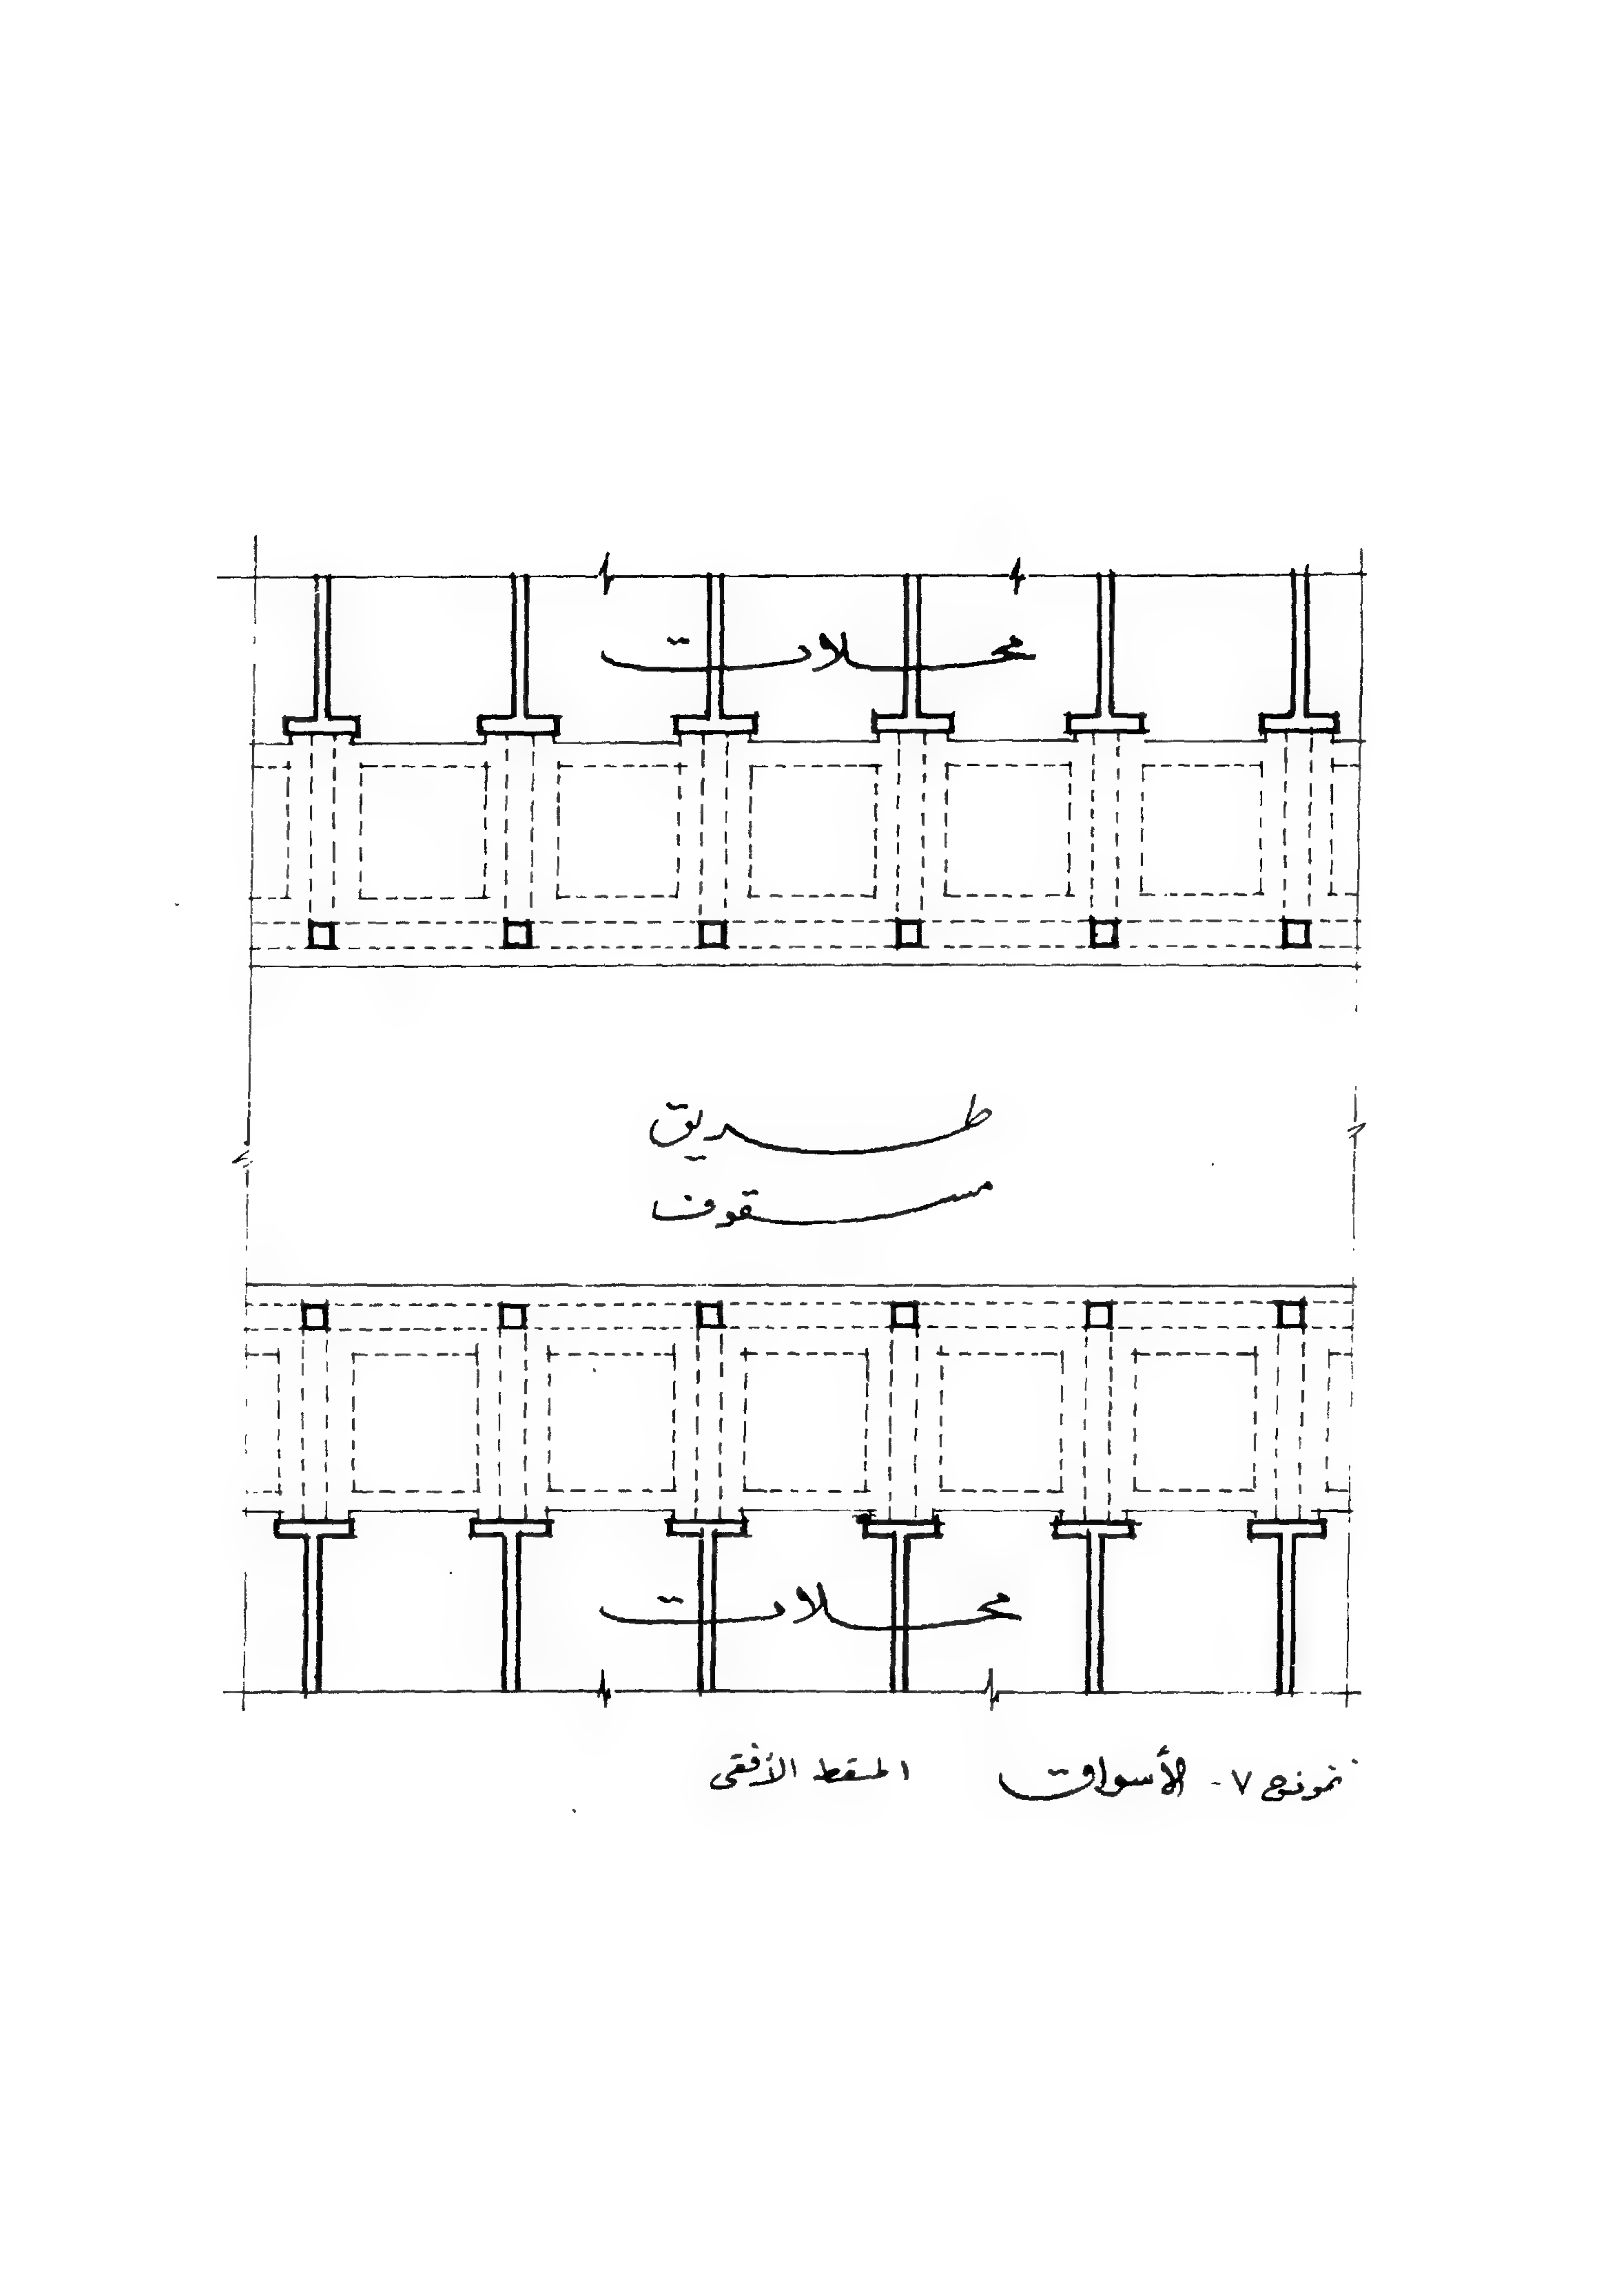 محلات
طريق
مسقوف
محلات
نموذج ٧- الأسواق المسقط الأفقى